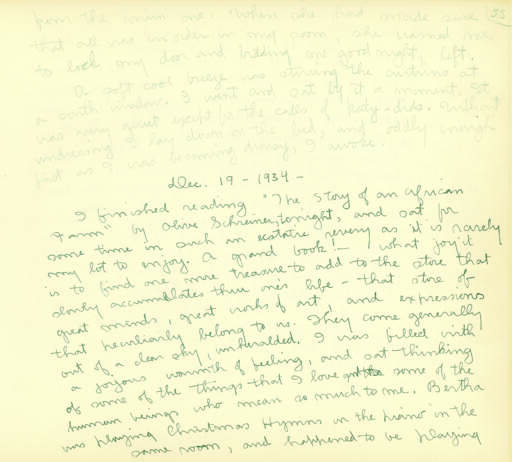 55
from the main one. When she had made sure
that all was in order in my room, she warned me
to lock my door and bidding me good night, left.
A soft cool breeze was stirring the curtains at
a south window. I went and sat by it a moment. It
was very quiet except for the calls of katy-dids. Without
undressing I lay down on the bed, and oddly enough
just as I was becoming drowsy, I awoke.
Dec. 19 - 1934 -
I finished reading "The Story of an African
Farm" by Olive Schreiner, tonight, and sat for
some time in such an ecstatic revery as it is rarely
my lot to enjoy. A grand book! - what joy it
is to find one more treasure to add to the store that
slowly accumulates thru one's life - that store of
great minds, great works of art, and expressions
that peculiarly belong to us. They come generally
out of a clear sky, unheralded. I was filled with
a joyous warmth of feeling, and sat thinking
of some of the things that I love some of the
human beings who mean so much to me. Bertha
was playing Christmas Hymns on the piano in the
same room, and happened to be playing